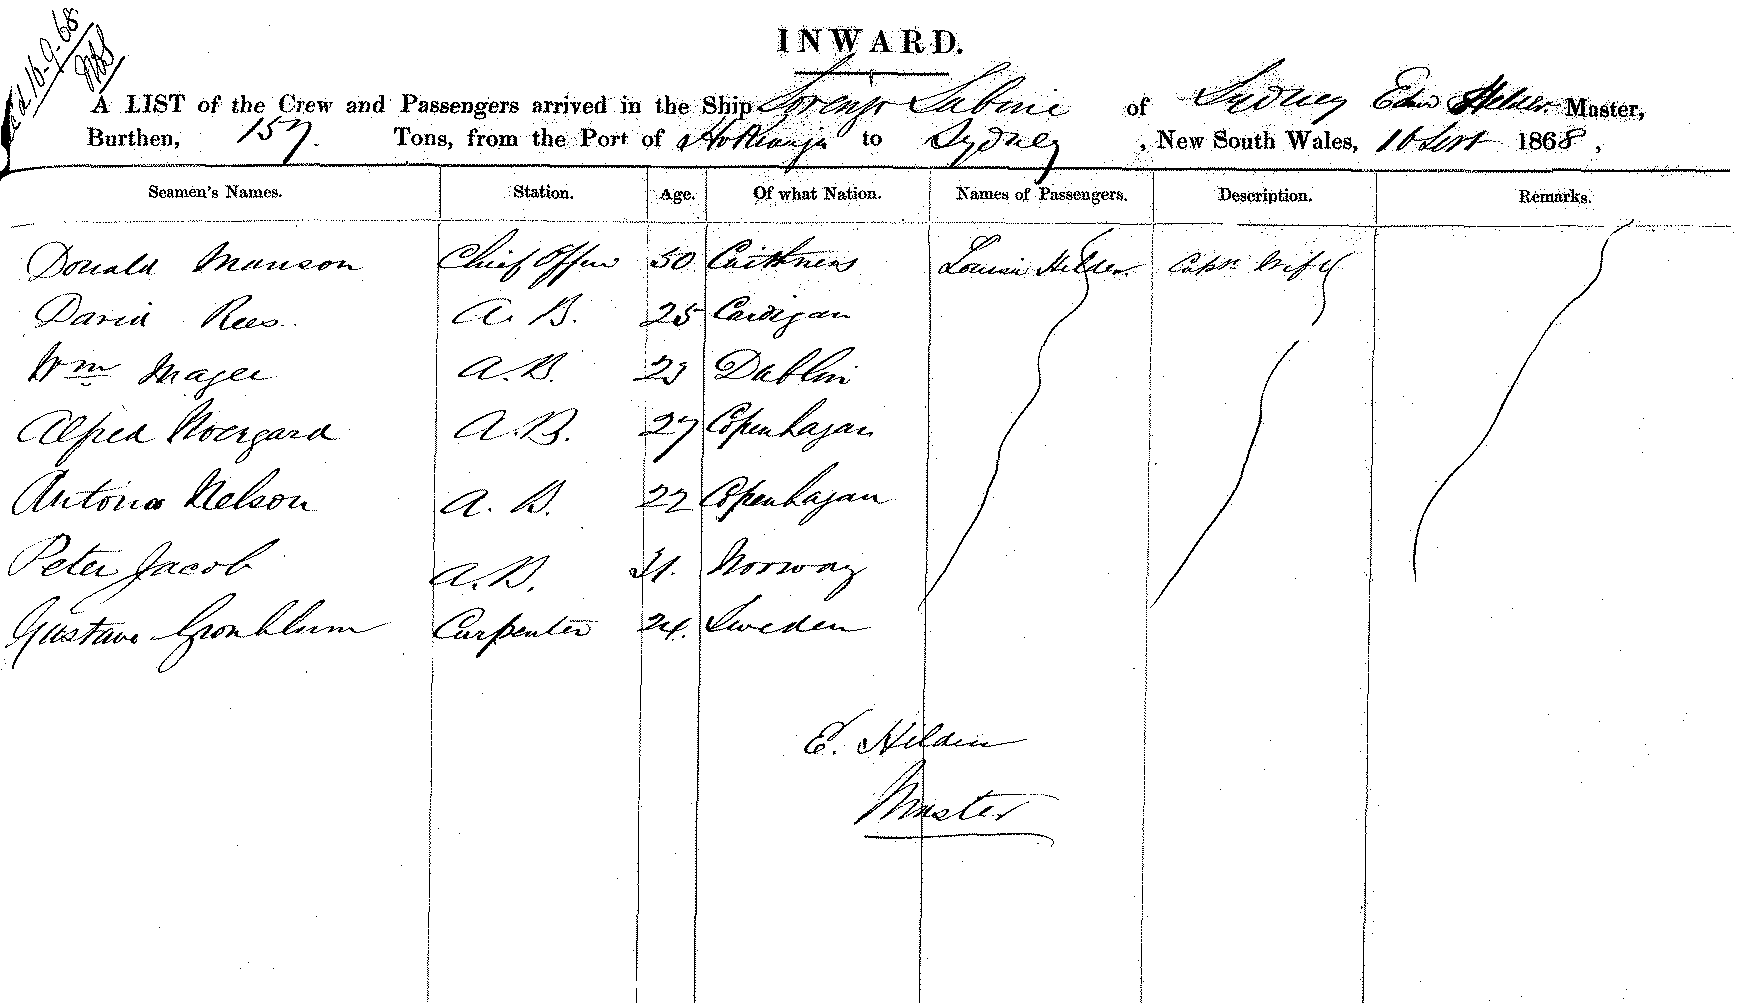 16-9-68
INWARD.
A LIST of the Crew and Passengers arrived in the Ship Lorenzo Sabine of Sydney Edw Helder Master,
Burthen, 157. Tons, from the Port of Hokianga to Sydney, New South Wales, 16 Sept 1868,
Seamen's Names. Station. Age. Of what Nation. Names of Passengers. Description. Remarks.
Donald Manson Chief Officer 50 Caithness Louisa Helder Capts Wife
David Rees. A. B. 25 Cardigan
Wm Magee A.B. 23 Dublin
Alfred Noergard A.B. 27 Copenhagan
Antonio Nelson A. B. 22 Copenhagan
Peter Jacob A.B. 31. Norway
Gustave Gronblum Carpenter 24. Sweden
E. Helder
Master